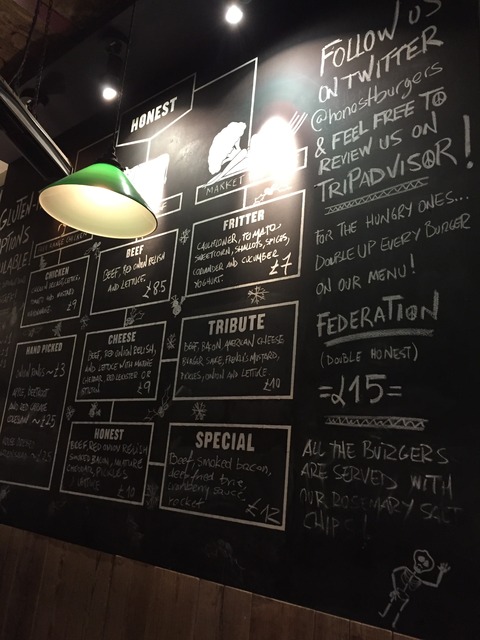 HONEST
MARKET
FRITTER
CAULIFLOWER, POTATO,
SWEETCORN, SHALLOTS, SPICES,
CORIANDER AND CUCUMBER
YOGHURT.
£7
BEEF
BEEF, RED ONION RELISH
AND LETTUCE.
£8.5
CHICKEN
£9
TRIBUTE
BEEF, BACON, AMERICAN CHEESE
BURGER SAUCE, FRENCH'S MUSTARD,
PICKLES, ONION AND LETTUCE.
£10
CHEESE
BEEF, RED ONION RELISH,
AND LETTUCE WITH MATURE
CHEDDAR, RED LEICESTER OR
STILTON
£9
HAND PICKED
~£3
SPECIAL
Beef, smoked bacon,
deep fried brie,
cranberry sauce,
rocket
£12
HONEST
BEEF, RED ONION RELISH
SMOKED BACON, MATURE
CHEDDAR, PICKLES
& LETTUCE
£10
GLUTEN
OPTIONS
FOLLOW US
ON TWITTER
@honestburgers
& FEEL FREE TO
REVIEW US ON
TRIPADVISOR!
FOR THE HUNGRY ONES...
DOUBLE UP EVERY BURGER
ON OUR MENU!
FEDERATION
(DOUBLE HONEST)
=£15=
ALL THE BURGERS
ARE SERVED WITH
OUR ROSEMARY SALT
CHIPS!